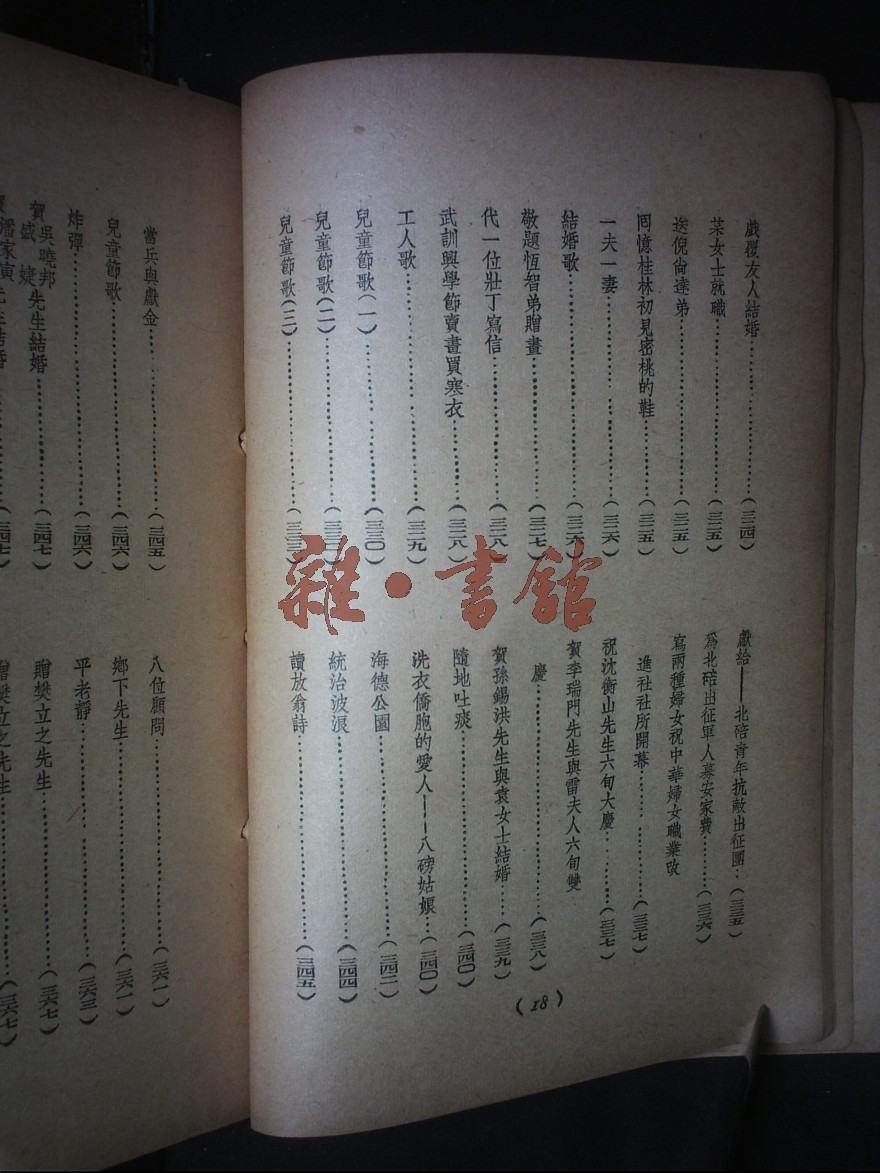 戲覆友人結婚……(三二四)
某女士就職……(三二五)
送倪尙達弟……(三二五)
囘憶桂林初見密桃的鞋……(三二五)
一夫一妻……(三二六)
結婚歌……(三二六)
敬題恆智弟贈畫……(三二七)
代一位壯丁寫信……(三二八)
武訓興學節賣畫買寒衣……(三二八)
工人歌……(三二九)
兒童節歌(一)……(三三〇)
兒童節歌(二)……
兒童節歌(三)……
獻給——北碚靑年抗敵出征團…(三三五)
爲北碚出征軍人募安家費……(三三六)
寫兩種婦女祝中華婦女職業改
進社社所開幕……(三三七)
祝沈衡山先生六旬大慶……(三三七)
賀李瑞門先生與雷夫人六旬雙
慶……(三三八)
賀孫錫洪先生與袁女士結婚……(三三九)
隨地吐痰……(三四〇)
洗衣僑胞的愛人——八磅姑娘…(三四〇)
海德公園……(三四二)
統治波浪……(三四四)
讀放翁詩……(三四五)
(18)
當兵與獻金……(三四五)
兒童節歌……(三四六)
炸彈……(三四六)
賀吳曉邦盛婕先生結婚……(三四七)
潘家寅先生結婚……(三四七)
八位顧問……(三六一)
鄉下先生……(三六一)
平老靜……(三六三)
贈樊立之先生……(三六七)
贈樊立之先生……(三六七)
雜·書館